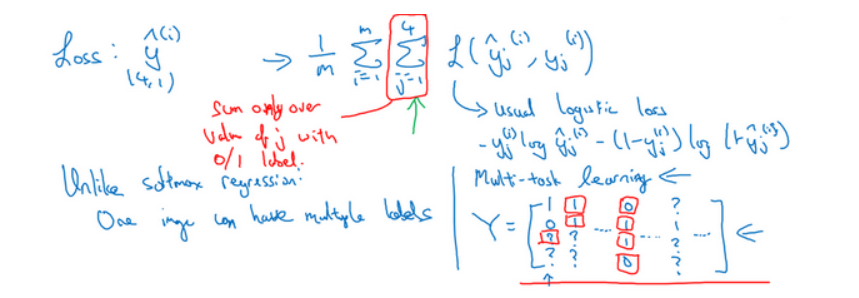 Loss: ŷ^(i) → 1/m ∑_{i=1}^{m} ∑_{j=1}^{4} L(ŷ_j^(i), y_j^(i))
(4,1)
Sum only over
value of j with
0/1 label.
usual logistic loss
- y_j^(i) log ŷ_j^(i) - (1-y_j^(i)) log (1-ŷ_j^(i))
Unlike softmax regression:
One image can have multiple labels
Multi-task learning ←
Y = [
1 1 0 ?
0 1 .... 1 1
? ? 1 ... ? ...
? ? 0 ?
] ←